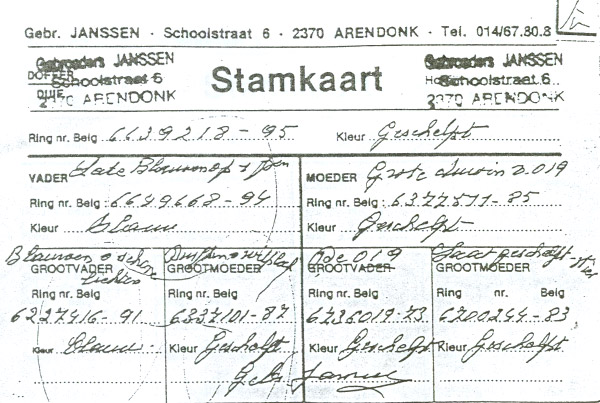 Gebr. JANSSEN · Schoolstraat 6 · 2370 ARENDONK · Tel. 014/67.80.8
Gebroeders JANSSEN
DOFFER
Schoolstraat 6
DUIF
2370 ARENDONK
Stamkaart
Gebroeders JANSSEN
Schoolstraat 6
2370 ARENDONK
Ring nr. Belg 6639218-95 Kleur Geschelpt
VADER Late Blauwen
Ring nr. Belg : 6649668-94
Kleur Blauw
MOEDER Grote duivin v. 019
Ring nr. Belg : 6377511-85
Kleur Geschelpt
Blauwen v schone
GROOTVADER
Ring nr. Belg
6227416-91
Kleur Blauw
GROOTMOEDER
Ring nr. Belg
6337101-87
Kleur Geschelpt
De 019
GROOTVADER
Ring nr. Belg
6736019-73
Kleur Geschelpt
Laat geschelpt
GROOTMOEDER
Ring nr. Belg
6700244-83
Kleur Geschelpt
Gebr Janssen